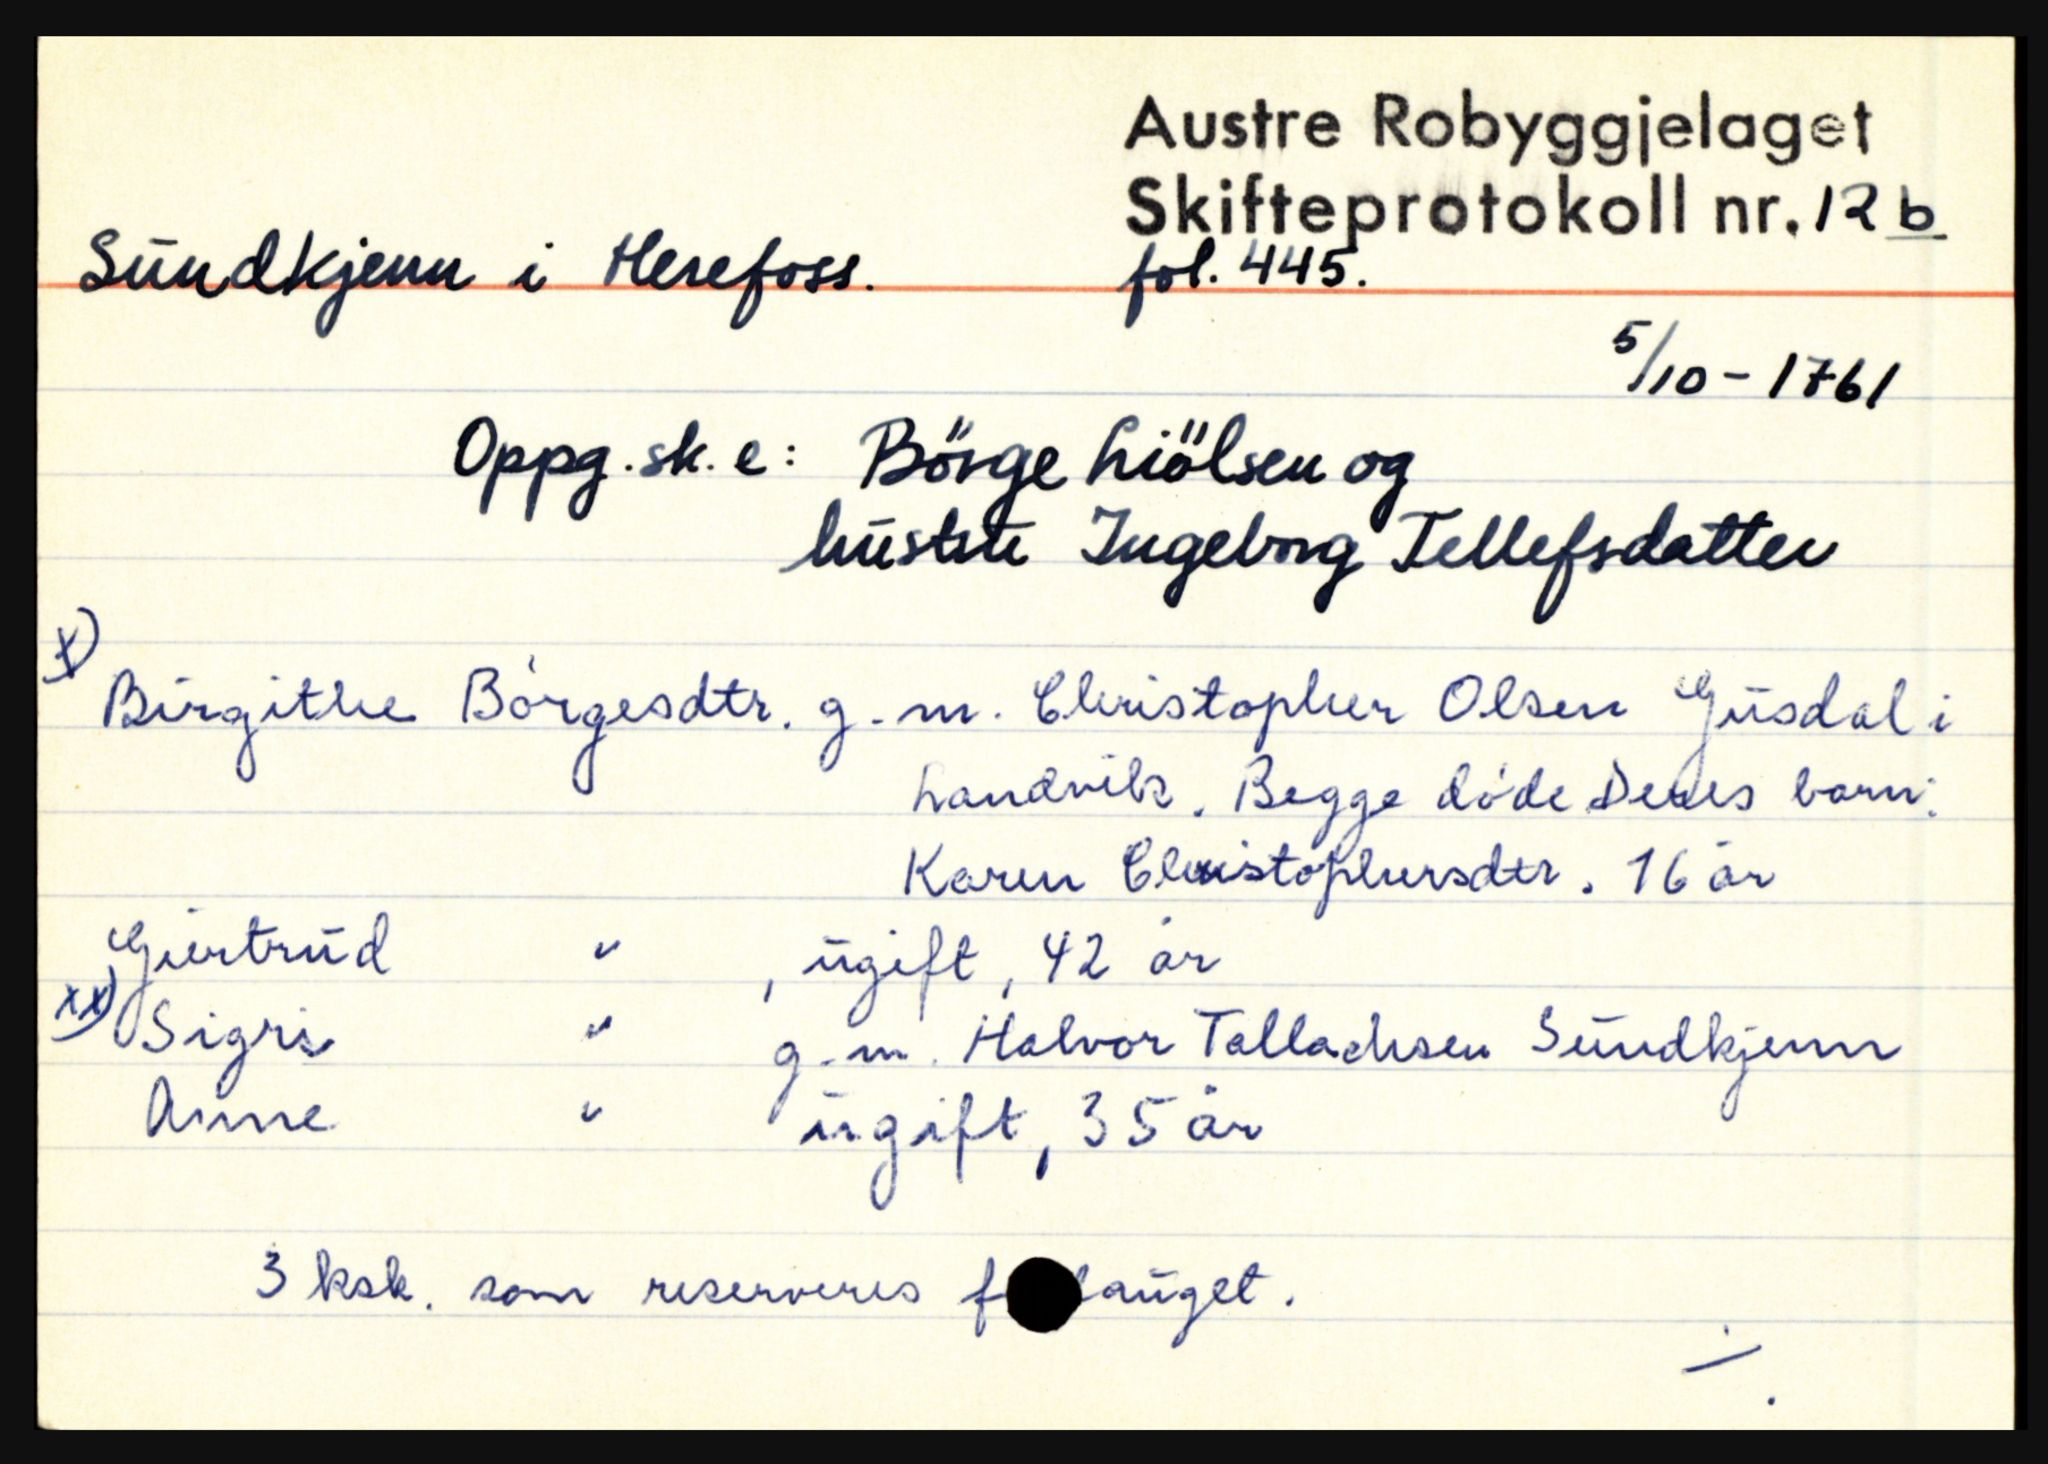 Austre Robyggjelaget
Skifteprotokoll nr. 12 b
Sundkjenn i Herefoss. fol. 445.
5/10 - 1761
Oppg. sk. e: Börge Liölsen og
hustru Ingeborg Tellefsdatter
x) Birgithe Börgesdtr. g. m. Christopher Olsen Giusdal i
Landvik. Begge døde Deres barn:
Karen Christophersdtr. 16 år
Giertrud " , ugift, 42 år
xx) Sigris " g. m. Halvor Tallachsen Sundkjenn
Anne " ugift, 35 år
3 ksk. som reserveres f lauget.